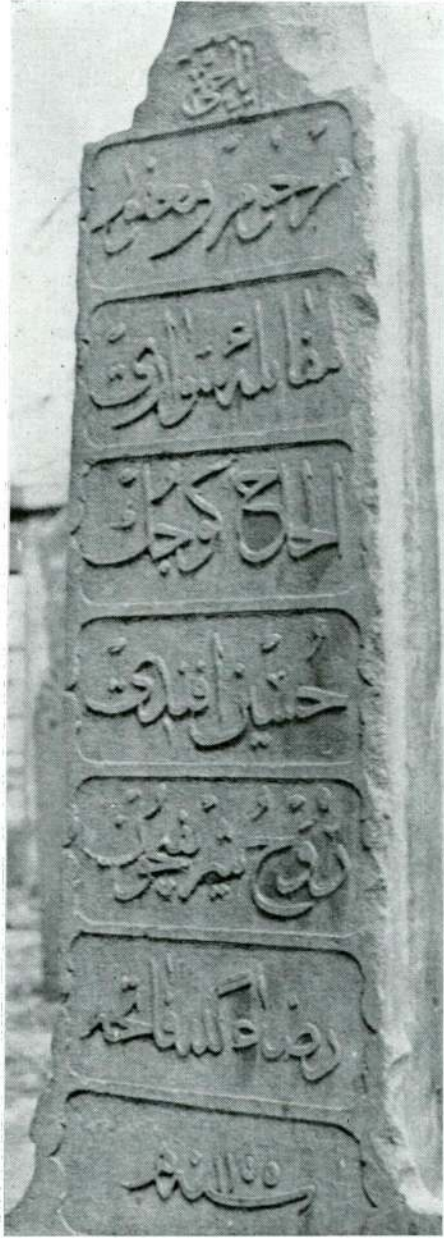 مرحوم و مغفور
مقابلهٔ سوارى
الحاج كوچك
حسين افندى
روح شريفيچون
رضاء لله فاتحه
سنه ١١٥٥